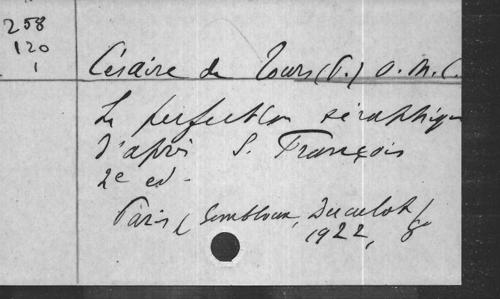 258
120
1
Césaire de Tours (P.) O. M. C.
La perfection séraphique
d'après S. François
2e ed -
Paris (Gembloux, Duculot)
1922, 8°